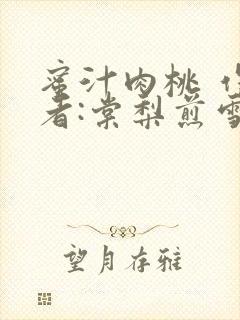 蜜汁肉桃
者:棠梨煎雪
望月存雅